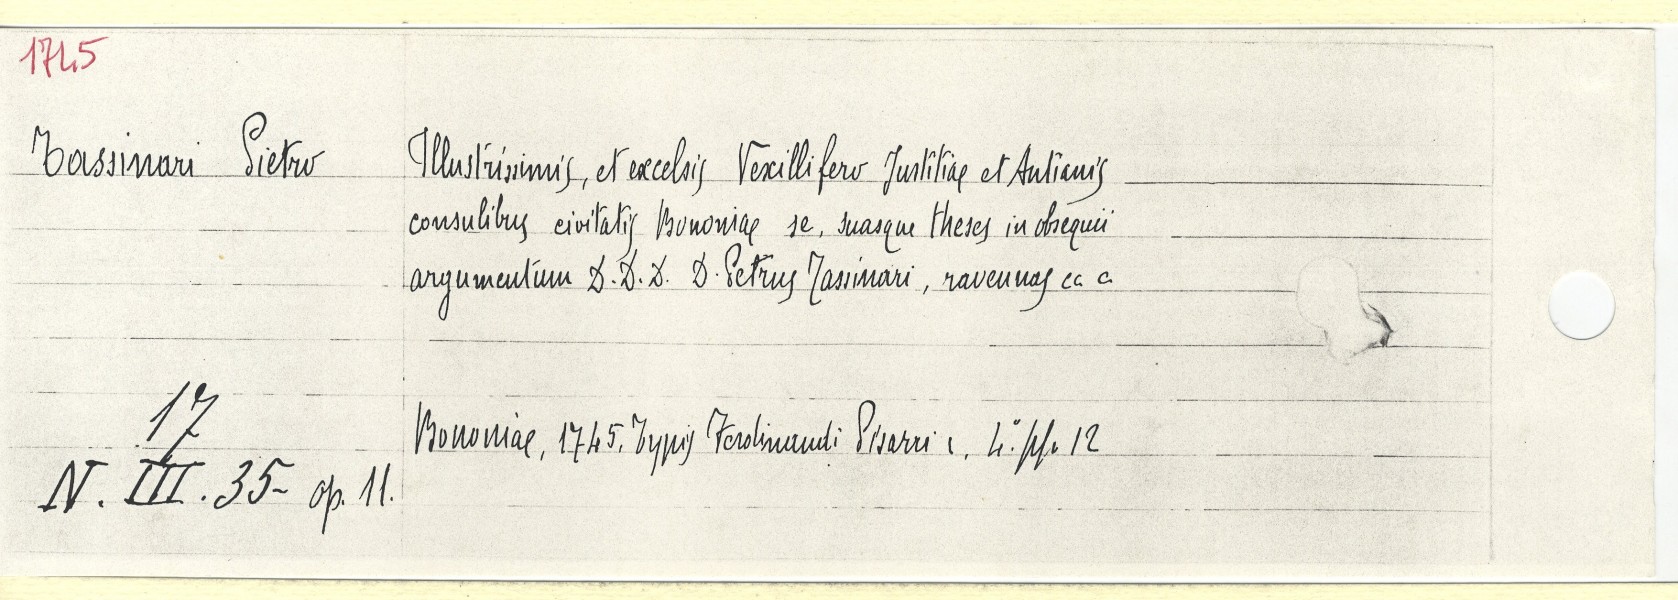 1745
Tassinari Pietro
Illustrissimis, et excelsis Vexillifero Justitiae et Antianis
consulibus civitatis Bononiae se, suasque theses in obsequii
argumentum D.D.D. D. Petrus Tassinari, ravennas
Bononiae, 1745. Typis Ferdinandi Pisarri 4.° pp. 12
17
N. III. 35- op. 11.